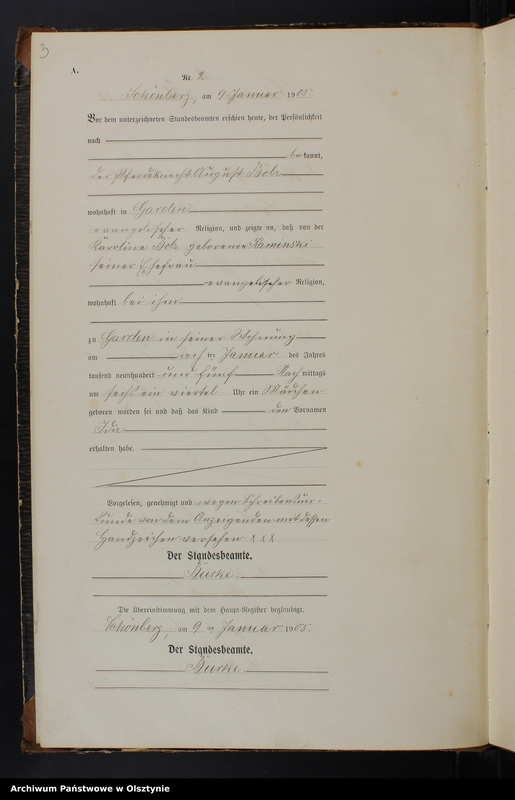 3
A.
Nr. 2.
Schönberg, am 9. Januar 1905.
Vor dem unterzeichneten Standesbeamten erschien heute, der Persönlichkeit
nach
bekannt,
der Pferdeknecht August Bolz
wohnhaft in Garden
evangelischer Religion, und zeigte an, daß von der
Karoline Bolz geborenen Kaminski
seiner Ehefrau
evangelischer Religion,
wohnhaft bei ihm
zu Garden in seiner Wohnung
am acht ten Januar des Jahres
tausend neunhundert und fünf Nachmittags
um sechs ein viertel Uhr ein Mädchen
geboren worden sei und daß das Kind den Vornamen
Ida
erhalten habe.
Vorgelesen, genehmigt und wegen Schreibensun-
kunde von dem Anzeigenden mit dessen
Handzeichen versehen X X X
Der Standesbeamte.
Murke.
Die Übereinstimmung mit dem Haupt-Register beglaubigt.
Schönberg, am 9 ten Januar 1905.
Der Standesbeamte.
Murke.
Archiwum Państwowe w Olsztynie